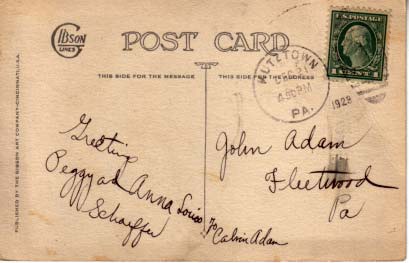 GIBSON
LINES
POST CARD
THIS SIDE FOR THE MESSAGE
THIS SIDE FOR THE ADDRESS
PUBLISHED BY THE GIBSON ART COMPANY-CINCINNATI, U.S.A.
KUTZTOWN
PM
PA.
1928
U.S. POSTAGE
1 CENT 1
Greeting
Peggy and Anna Louise
Schaeffer
John Adam
Fleetwood
Pa
℅ Calvin Adam